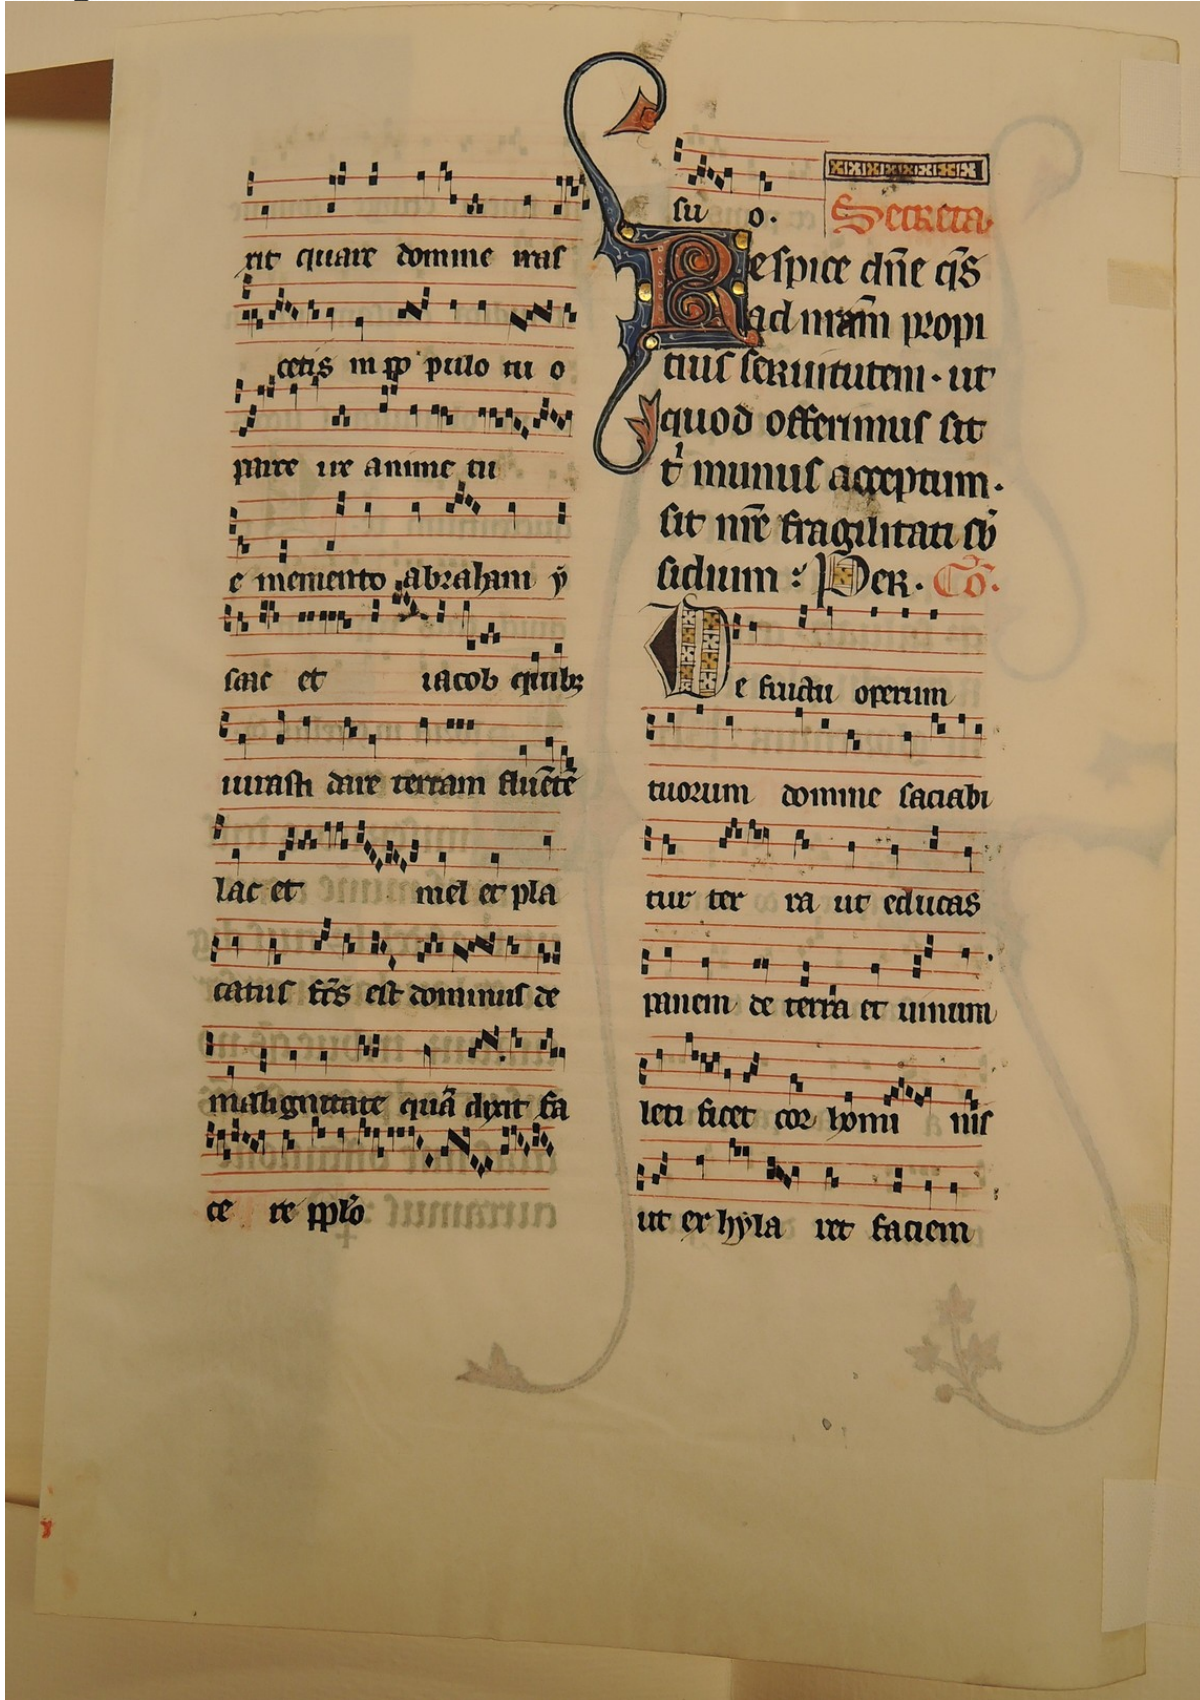 xit quare domine iras
ceris in pp̄ pulo tu o
parce ire anime tu
e memento abraham ẏ
saac et iacob quibꝫ
iurasti dare terram fluētē
lac et mel et pla
catus fc̄s est dominus de
malignitate quā dixit fa
ce re pplo
su o.
Secreta.
Respice dn̄e qs̄
ad nr̄am propi
tius seruitutem · ut
quod offerimus sit
t̉ munus acceptum ·
sit nr̄e fragilitati sb̄
sidium : Per. Cō.
De fructu operum
tuorum domine saciabi
tur ter ra ut educas
panem de terra et uinum
leti ficet cor homi nis
ut ex hyla ret faciem